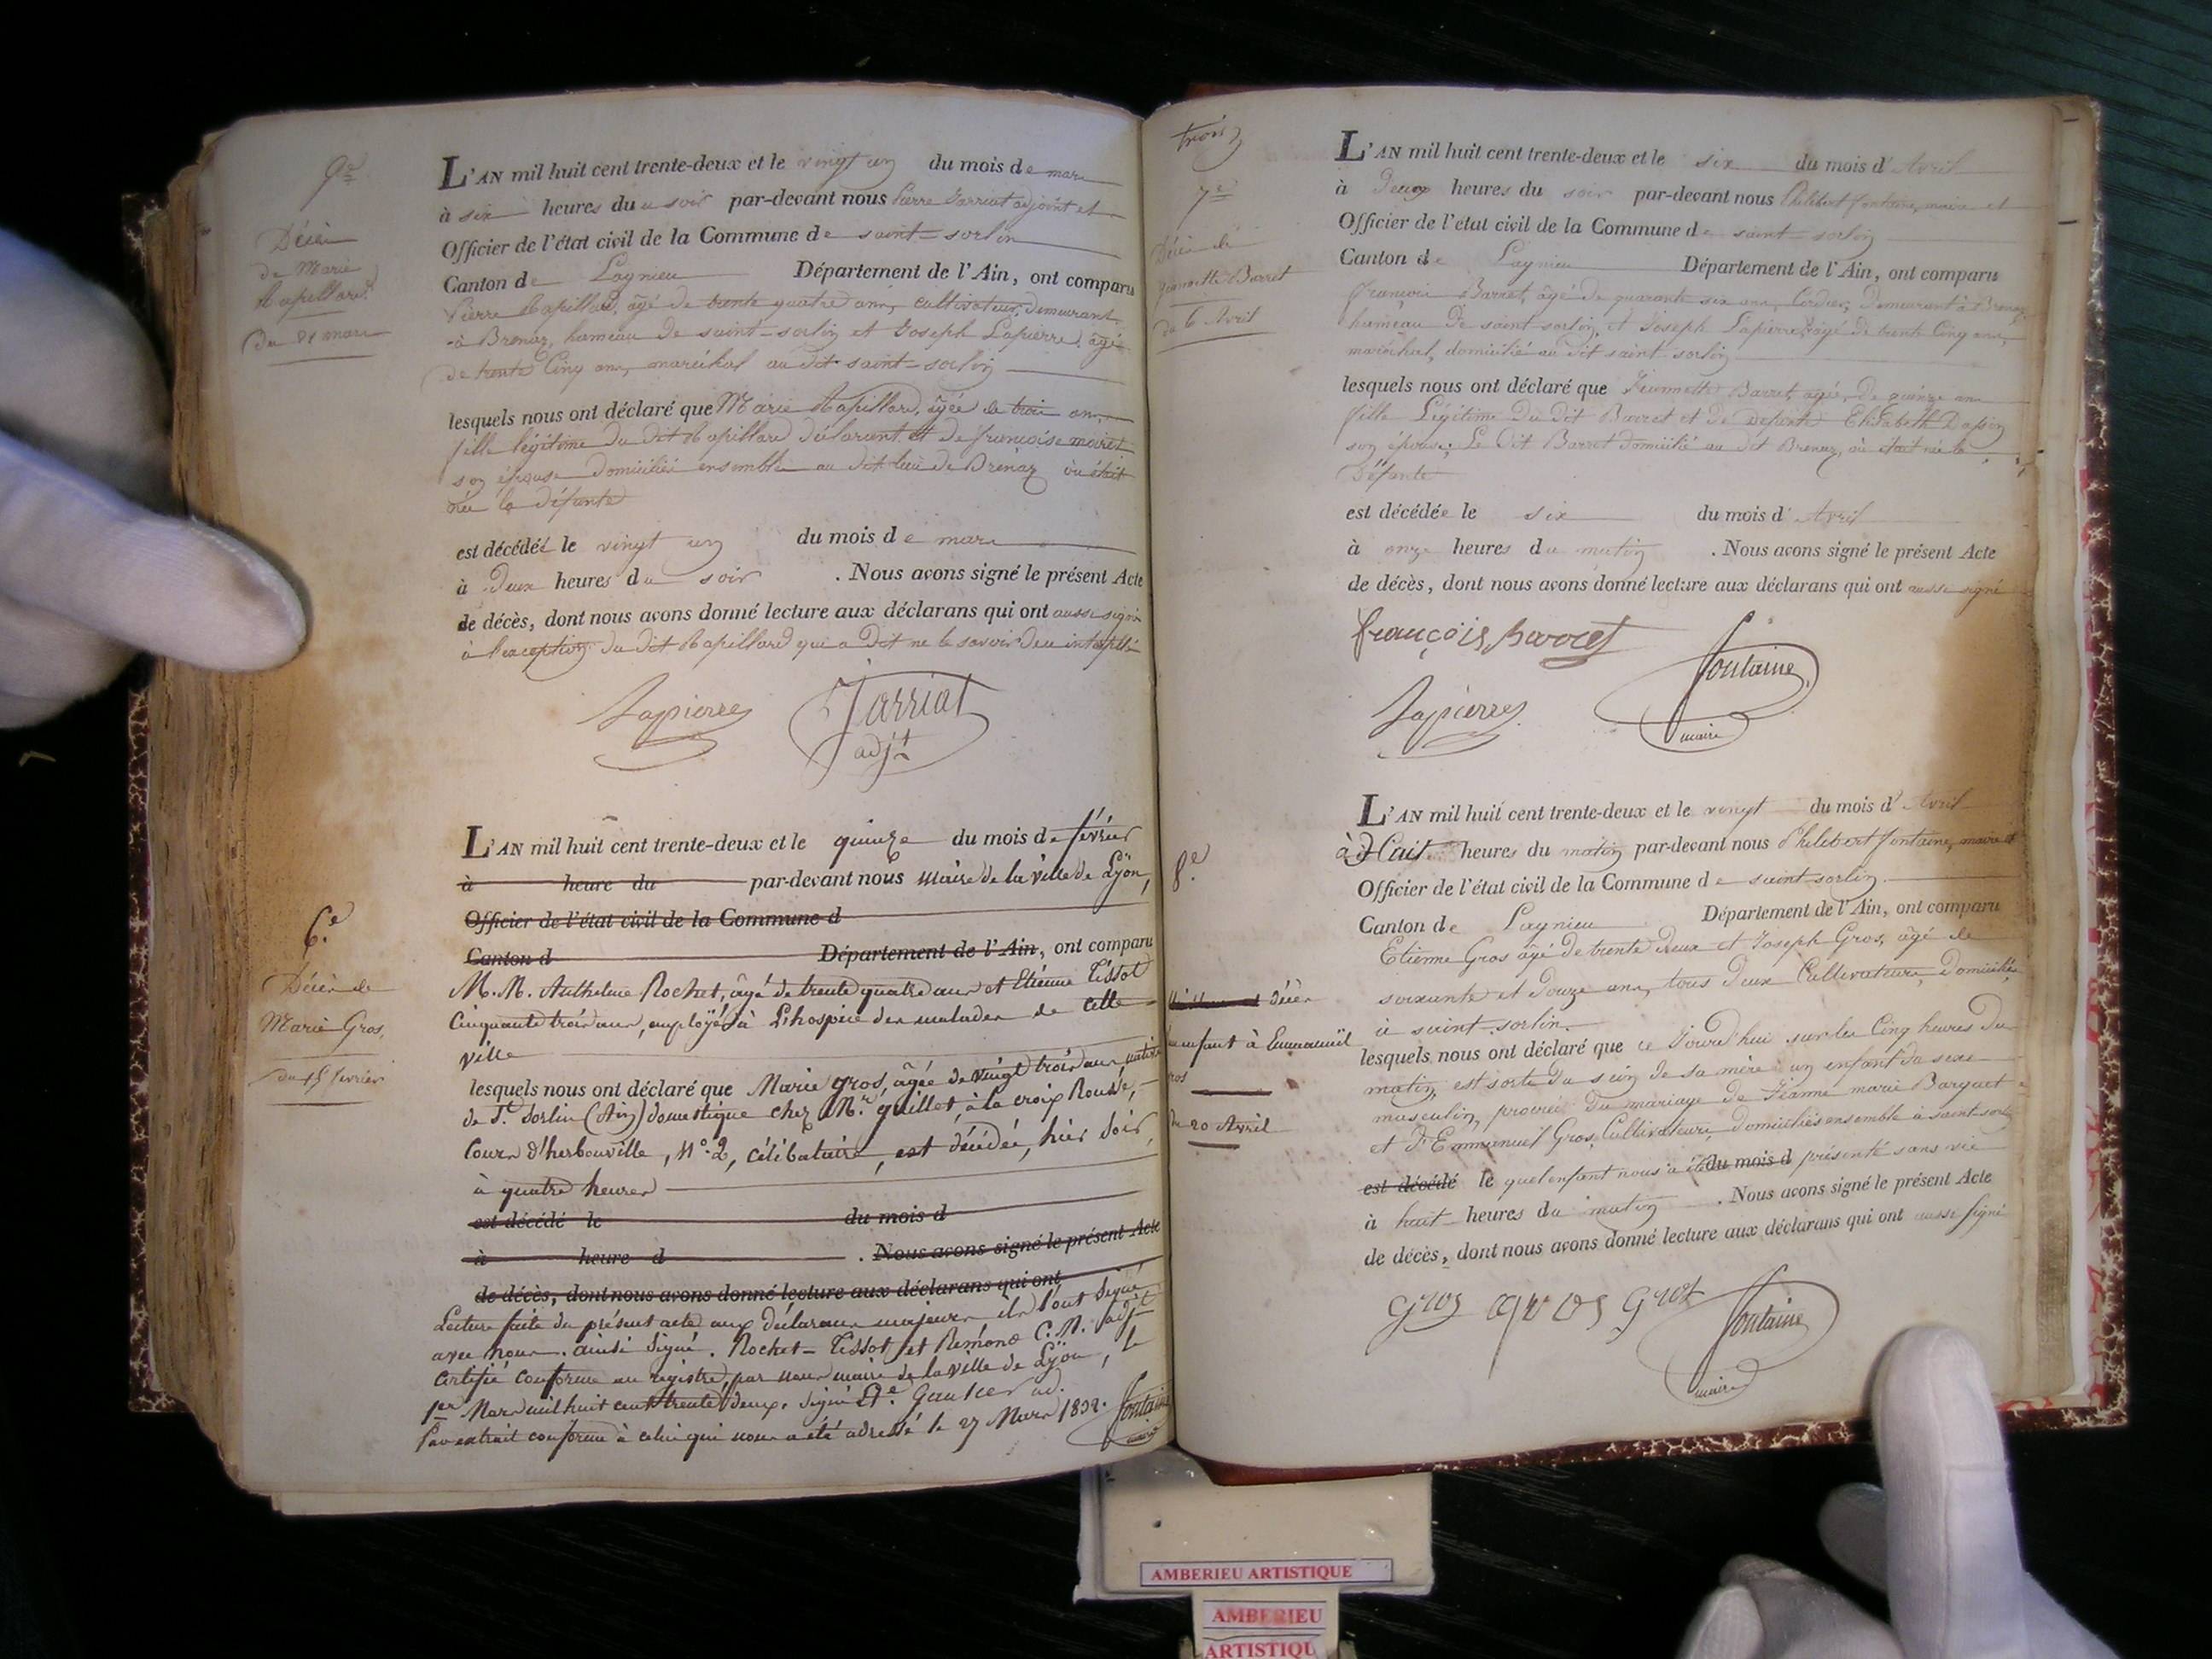 Décès
de Marie
Rapillard
du 21 mars
L'AN mil huit cent trente-deux et le vingt un du mois de mars
à six heures du soir par-devant nous Pierre Jarriat adjoint et
Officier de l'état civil de la Commune de saint-sorlin
Canton de Lagnieu Département de l'Ain, ont comparu
Pierre Rapillard, âgé de trente quatre ans, cultivateur, demeurant
à Brenaz, hameau de saint-sorlin et Joseph Lapierre, âgé
de trente Cinq ans, maréchal au dit saint-sorlin
lesquels nous ont déclaré que Marie Rapillard, âgée de trois ans,
fille légitime du dit Rapillard déclarant et de françoise
son épouse domiciliés ensemble au dit lieu de Brenaz où était
née la défunte
est décédée le vingt un du mois de mars
à Deux heures du soir . Nous avons signé le présent Acte
de décès, dont nous avons donné lecture aux déclarans qui ont aussi signé
à l'exception du dit Rapillard qui a dit ne le savoir de ce interpellé
Lapierre Jarriat
adjt
6.e
Décès de
Marie Gros,
du 15 février
L'AN mil huit cent trente-deux et le quinze du mois de février
à heure du par-devant nous Maire de la ville de Lyon,
Officier de l'état civil de la Commune d
Canton d Département de l'Ain, ont comparu
M.M. Anthelme Rochet, âgé de trente quatre ans et Etienne Tissot
Cinquante trois ans, employés à L'hospice des malades de cette
ville
lesquels nous ont déclaré que Marie gros, âgée de vingt trois ans, native
de St. Sorlin (Ain) domestique chez Mr. guillot, à la croix Rousse,
Cours d'herbouville, N°. 2, célibataire, est décédée, hier soir,
à quatre heures
est décédé le du mois d
à heure d . Nous avons signé le présent Acte
de décès, dont nous avons donné lecture aux déclarans qui ont
Lecture faite du présent acte aux déclarans majeurs ils l'ont signé
avec nous. ainsi signé. Rochet - Tissot et Rémond C.M. adjt
Certifié conforme au registre, par nous maire de la ville de Lyon, le
1er Mars mil huit cent trente deux. signé Et. Gautier ad.
Pour extrait conforme à celui qui nous a été adressé le 27 Mars 1832. fontaine
maire
trois
7e
Décès de
Jeannette Barret
du 6 Avril
L'AN mil huit cent trente-deux et le six du mois d'Avril
à Deux heures du soir par-devant nous Philibert fontaine, maire et
Officier de l'état civil de la Commune de saint-sorlin
Canton de Lagnieu Département de l'Ain, ont comparu
françois Barret, âgé de quarante six ans, Cordier, Demeurant à Brenaz
hameau De saint-sorlin, et Joseph Lapierre, âgé de trente Cinq ans,
maréchal, domicilié au dit saint-sorlin
lesquels nous ont déclaré que Jeannette Barret, âgée de quinze ans
fille Légitime Du dit Barret et de défunte Elisabeth
son épouse; Le Dit Barret domicilié au dit Brenaz, où était née la
Défunte
est décédée le six du mois d'Avril
à onze heures du matin . Nous avons signé le présent Acte
de décès, dont nous avons donné lecture aux déclarans qui ont aussi signé
françois Barret
Lapierre fontaine
maire
8.e
décès
un enfant à Emmanuel
ros
du 20 Avril
L'AN mil huit cent trente-deux et le vingt du mois d'Avril
à huit heures du matin par-devant nous Philibert fontaine, maire et
Officier de l'état civil de la Commune de saint-sorlin
Canton de Lagnieu Département de l'Ain, ont comparu
Etienne Gros âgé de trente deux et Joseph Gros, âgé de
soixante et douze ans, tous deux Cultivateurs, domiciliés
à saint-sorlin.
lesquels nous ont déclaré que ce Jourd'hui sur les Cinq heures du
matin, est sorti du sein de sa mère un enfant du sexe
masculin, procréé du mariage de Jeanne marie Barquet
et d'Emmanuel Gros, Cultivateurs, domiciliés ensemble à saint-sorlin
est décédé le quel enfant nous a été du mois d présenté sans vie
à huit heures du matin . Nous avons signé le présent Acte
de décès, dont nous avons donné lecture aux déclarans qui ont aussi signé
Gros gros Gros fontaine
maire
AMBERIEU ARTISTIQUE
AMBERIEU
ARTISTIQU